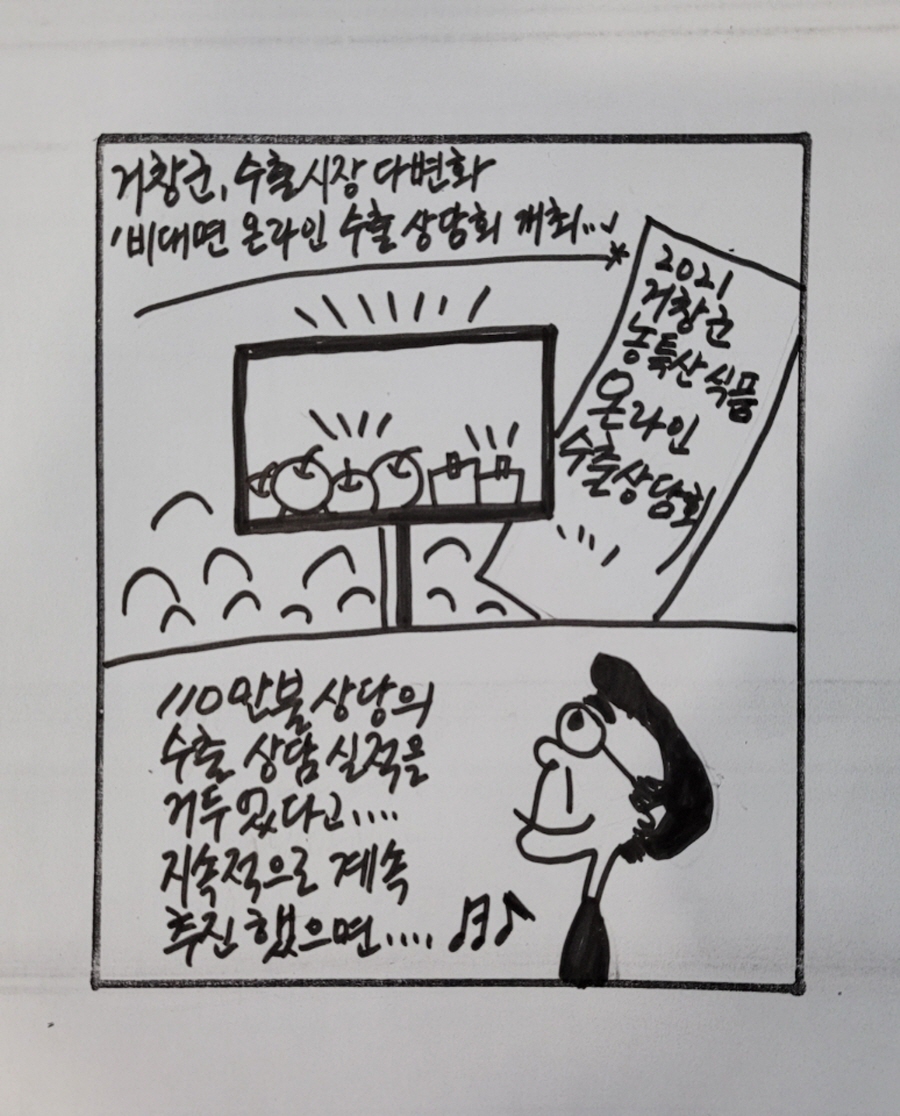 거창군, 수출시장 다변화
'비대면 온라인 수출 상담회 개최...'
2021
거창군
농특산식품
온라인
수출상담회
110만불 상당의
수출 상담 실적을
거두었다고....
지속적으로 계속
추진했으면....